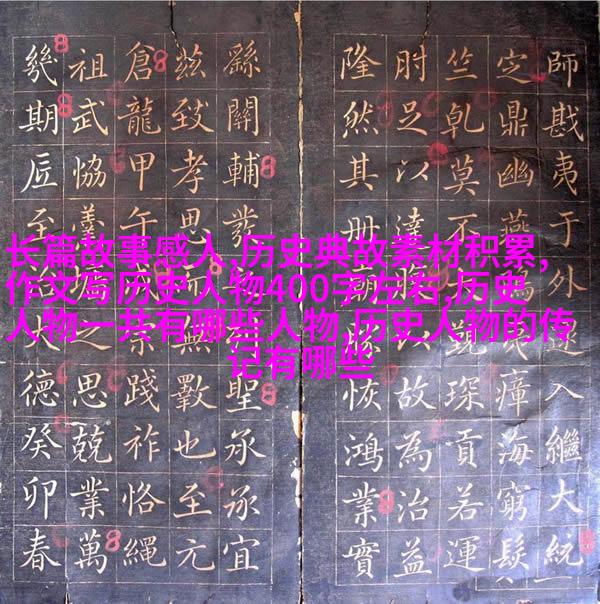 长篇故事感人,历史典故素材积累,
作文写历史人物400字左右,历史
人物一共有哪些人物,历史人物的传
记有哪些
師戡夷于外入繼大統
定鼎幽燕瘴海窮髮
竺乹莫不覲琛貢若運
肘足以達以故為治益
隆然其冊恢鴻業實
繇關輔發聖承承宜
茲致孝思而无斁也至元
倉龍甲午踐祚恪繩
祖武恊羹墻之思兢業萬
幾期匠至治大德癸卯春